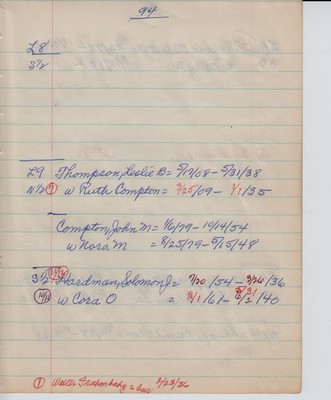 94
L8
S½
L9 Thompson, Leslie B = 5/17/08 - 5/31/38
N½ ① w Ruth Compton = 3/25/09 - 1/1/35
Compton, John M = 1/6/79 - 10/14/54
w Nora M = 8/25/79 - 5/15/48
S½ Hardman, Solomon J = 7/20/54 - 2/26/36
w Cora O = 8/1/61 - /40
① Walter